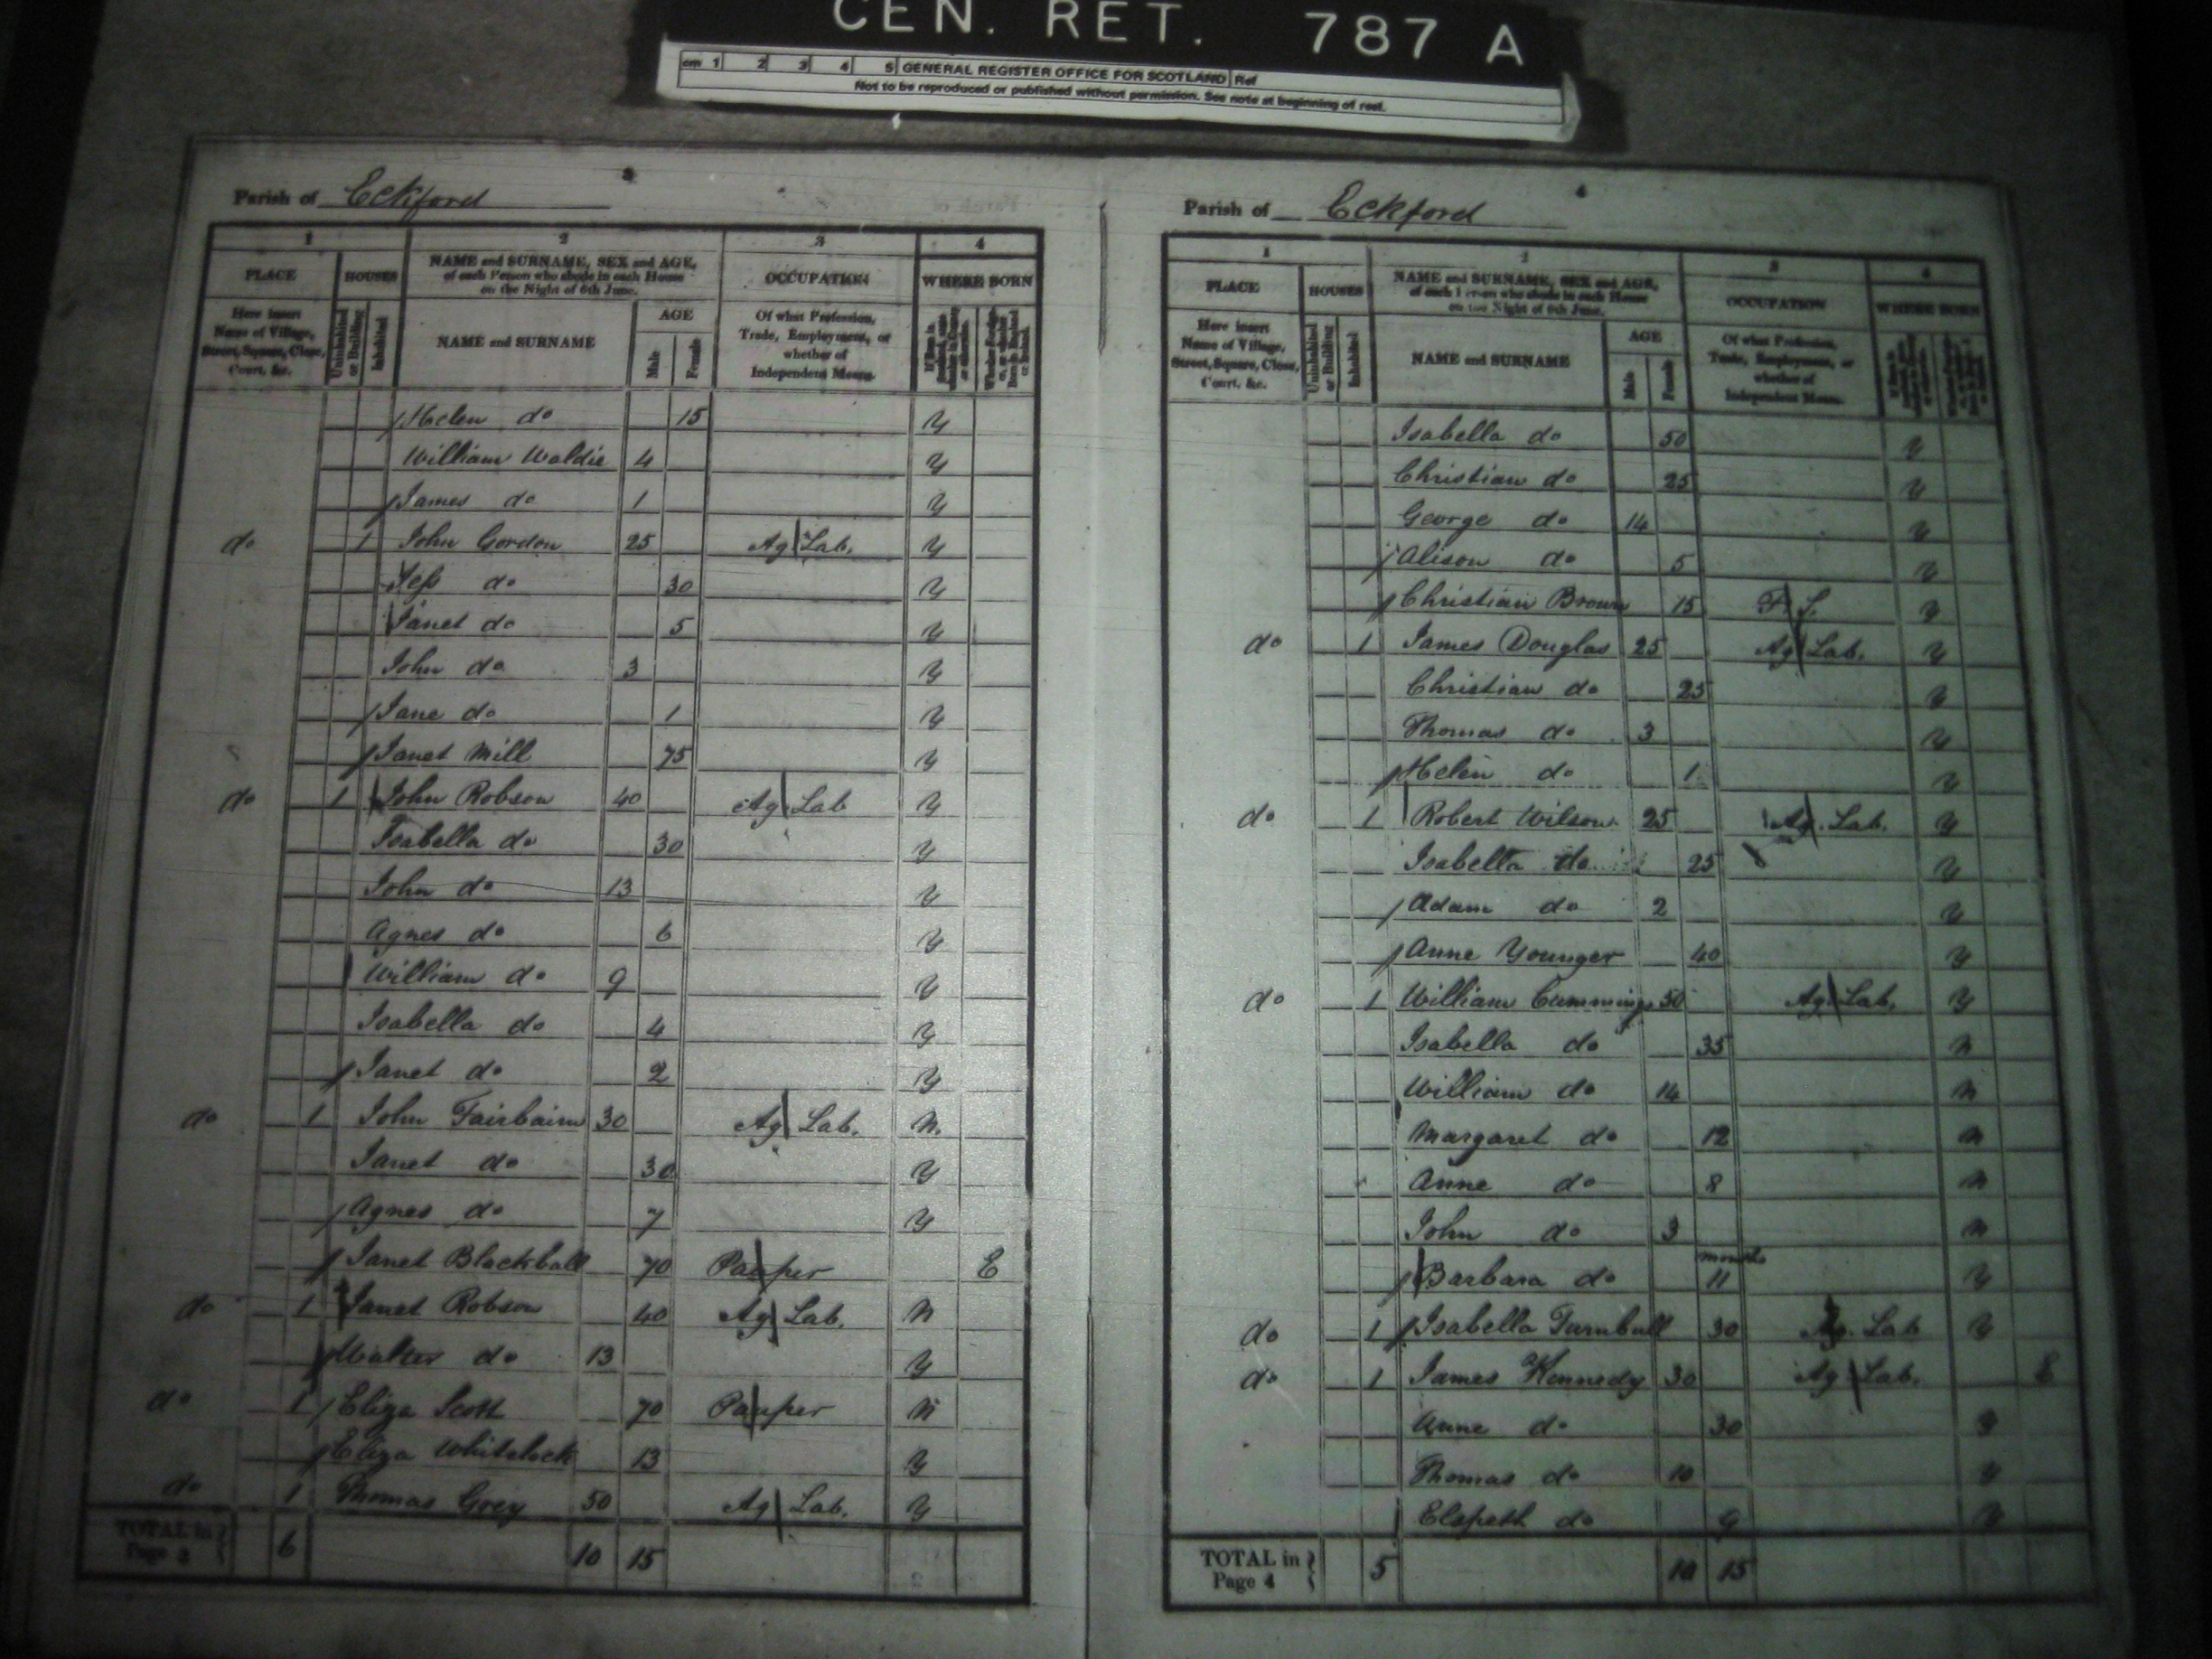 CEN. RET. 787 A
cm 1 2 3 4 5 GENERAL REGISTER OFFICE FOR SCOTLAND Ref
Not to be reproduced or published without permission. See note at beginning of reel.
3
Parish of Eckford
1 2 3 4
PLACE HOUSES NAME and SURNAME, SEX and AGE, of each Person who abode in each House on the Night of 6th June. OCCUPATION WHERE BORN
Here insert Name of Village, Street, Square, Close, Court, &c. Uninhabited or Building Inhabited NAME and SURNAME AGE Male Female Of what Profession, Trade, Employment, or whether of Independent Means.
Helen do 15 Y
William Waldie 4 Y
James do 1 Y
do 1 John Gordon 25 Ag Lab. Y
Jess do 30 Y
Janet do 5 Y
John do 3 Y
Jane do 1 Y
Janet Mill 75 Y
do 1 John Robson 40 Ag Lab Y
Isabella do 30 Y
John do 13 Y
Agnes do 6 Y
William do 9 Y
Isabella do 4 Y
Janet do 2 Y
do 1 John Fairbairn 30 Ag Lab. N.
Janet do 30 Y
Agnes do 7 Y
Janet Blackball 70 Pauper E
do 1 Janet Robson 40 Ag Lab. N
Walter do 13 Y
do 1 Eliza Scott 70 Pauper N
Eliza Whitelock 13 Y
do 1 Thomas Grey 50 Ag Lab. Y
TOTAL in Page 3 } 6 10 15
4
Parish of Eckford
1 2 3 4
PLACE HOUSES NAME and SURNAME, SEX and AGE, of each Person who abode in each House on the Night of 6th June. OCCUPATION WHERE BORN
Here insert Name of Village, Street, Square, Close, Court, &c. Uninhabited or Building Inhabited NAME and SURNAME AGE Male Female Of what Profession, Trade, Employment, or whether of Independent Means.
Isabella do 50 Y
Christian do 25 Y
George do 14 Y
Alison do 5 Y
Christian Brown 15 F. S. Y
do 1 James Douglas 25 Ag Lab. Y
Christian do 25 Y
Thomas do 3 Y
Helen do 1 Y
do 1 Robert Wilson 25 Ag. Lab. Y
Isabella do 25 Y
Adam do 2 Y
Anne Younger 40 Y
do 1 William Cummings 50 Ag Lab. Y
Isabella do 35 N
William do 14 N
Margaret do 12 N
Anne do 8 N
John do 3 N
Barbara do 11 months Y
do 1 Isabella Turnbull 30 Ag. Lab Y
do 1 James Kennedy 30 Ag Lab. E
Anne do 30 Y
Thomas do 10 Y
Elspeth do 9 Y
TOTAL in Page 4 } 5 10 15